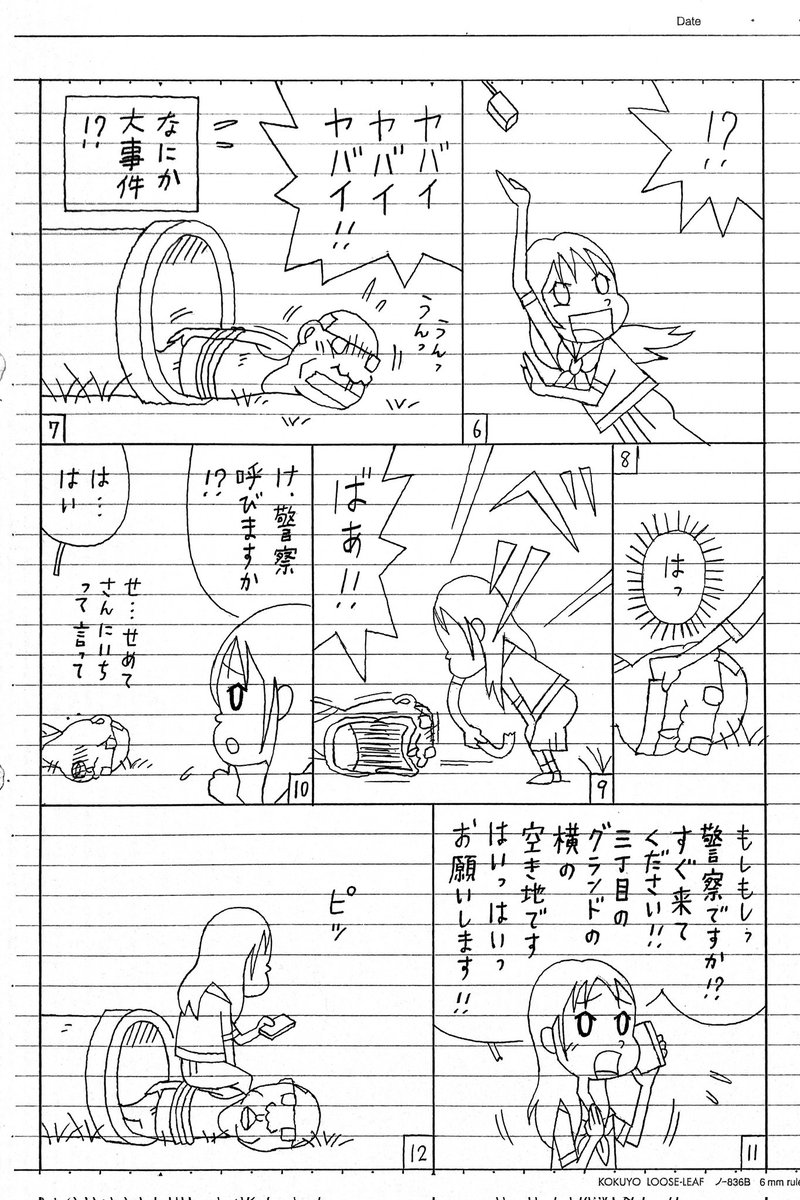 Date
!?
6
ヤバイ
ヤバイ
ヤバイ!!
うんっ
うんっ
なにか
大事件
!?
7
8
はっ
ばあ!!
9
け、警察
呼びますか
!?
せ…せめて
さんにいち
って言って
は…
はい
10
もしもしっ
警察ですか!?
すぐ来て
ください!!
三丁目の
グランドの
横の
空き地です
はいっはいっ
お願いします!!
11
ピッ
12
KOKUYO LOOSE-LEAF ノ-836B 6 mm rule